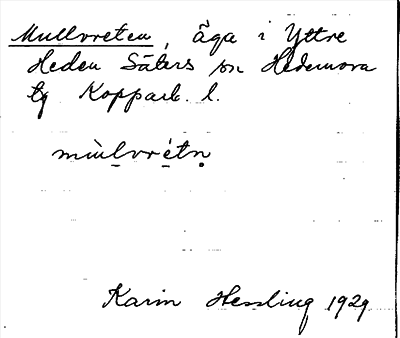 Mullvreten, äga i Yttre
Heden Säters sn Hedemora
tg Kopparb. l.
mùlvrétn̥
Karin Hessling 1929